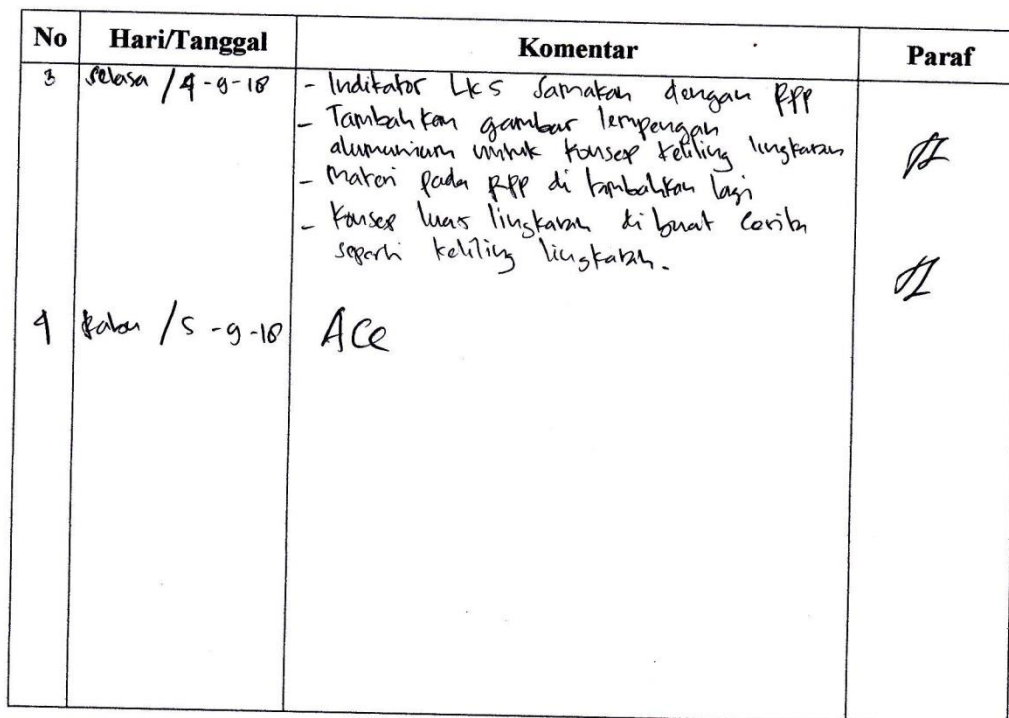 No Hari/Tanggal Komentar Paraf
3 Selasa / 4-9-18 - Indikator LKS Samakan dengan RPP
- Tambahkan gambar lempengan
alumunium untuk konsep keliling lingkaran
- Materi pada RPP di tambahkan lagi
- Konsep luas lingkaran di buat cerita
seperti keliling lingkaran.
4 Rabu / 5-9-18 Acc